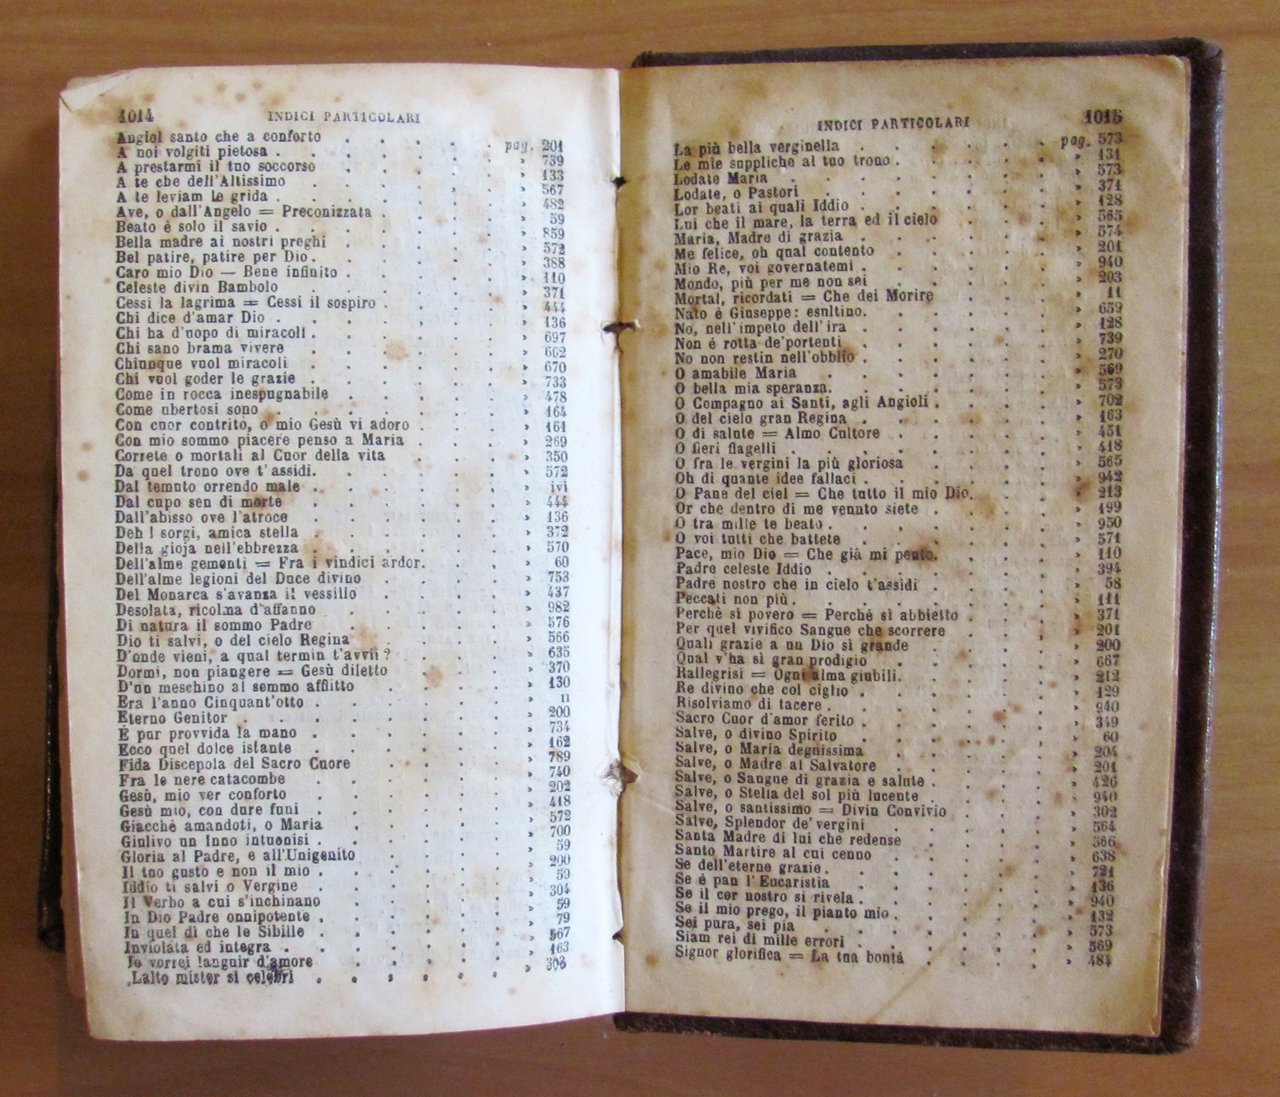 1014 INDICI PARTICOLARI
Angiol santo che a conforto . . . . . pag. 201
A noi volgiti pietosa . . . . . . » 739
A prestarmi il tuo soccorso . . . . . » 133
A te che dell'Altissimo . . . . . » 567
A te leviam le grida . . . . . . » 482
Ave, o dall'Angelo = Preconizzata . . . . » 59
Beato è solo il savio . . . . . . » 859
Bella madre ai nostri preghi . . . . . » 572
Bel patire, patire per Dio . . . . . » 388
Caro mio Dio — Bene infinito . . . . . » 110
Celeste divin Bambolo . . . . . » 371
Cessi la lagrima = Cessi il sospiro . . . . » 444
Chi dice d'amar Dio . . . . . . » 136
Chi ha d'uopo di miracoli . . . . . » 697
Chi sano brama vivere . . . . . » 602
Chiunque vuol miracoli . . . . . » 670
Chi vuol goder le grazie . . . . . » 733
Come in rocca inespugnabile . . . . . » 478
Come ubertosi sono . . . . . . » 164
Con cuor contrito, o mio Gesù vi adoro . . . » 161
Con mio sommo piacere penso a Maria . . . » 269
Correte o mortali al Cuor della vita . . . . » 350
Da quel trono ove t'assidi. . . . . . » 572
Dal temuto orrendo male . . . . . » ivi
Dal cupo sen di morte . . . . . » 444
Dall'abisso ove l'atroce . . . . . » 136
Deh ! sorgi, amica stella . . . . . » 372
Della gioja nell'ebbrezza . . . . . » 570
Dell'alme gementi = Fra i vindici ardor. . . . » 60
Dell'alme legioni del Duce divino . . . . » 753
Del Monarca s'avanza il vessillo . . . . » 437
Desolata, ricolma d'affanno . . . . . » 982
Di natura il sommo Padre . . . . . » 576
Dio ti salvi, o del cielo Regina . . . . » 566
D'onde vieni, a qual termin t'avvii ? . . . » 635
Dormi, non piangere = Gesù diletto . . . » 370
D'un meschino al sommo afflitto . . . . » 130
Era l'anno Cinquant'otto . . . . . » 11
Eterno Genitor . . . . . . » 200
E pur provvida la mano . . . . . » 734
Ecco quel dolce istante . . . . . » 162
Fida Discepola del Sacro Cuore . . . . » 789
Fra le nere catacombe . . . . . » 740
Gesù, mio ver conforto . . . . . » 202
Gesù mio, con dure funi . . . . . » 418
Giacchè amandoti, o Maria . . . . . » 572
Giulivo un Inno intuonisi . . . . . » 700
Gloria al Padre, e all'Unigenito . . . . » 59
Il tuo gusto e non il mio . . . . . » 200
Iddio ti salvi o Vergine . . . . . » 59
Il Verbo a cui s'inchinano . . . . . » 304
In Dio Padre onnipotente . . . . . » 59
In quel dì che le Sibille . . . . . » 79
Inviolata ed integra . . . . . . » 567
Io vorrei languir d'amore . . . . . » 163
L'alto mister si celebri . . . . . » 303
INDICI PARTICOLARI 1015
La più bella verginella . . . . . pag. 573
Le mie suppliche al tuo trono . . . . . » 131
Lodate Maria . . . . . . » 573
Lodate, o Pastori . . . . . . » 371
Lor beati ai quali Iddio . . . . . » 128
Lui che il mare, la terra ed il cielo . . . » 565
Maria, Madre di grazia . . . . . » 574
Me felice, oh qual contento . . . . » 201
Mio Re, voi governatemi . . . . . » 940
Mondo, più per me non sei . . . . . » 203
Mortal, ricordati = Che dei Morire . . . » 11
Nato è Giuseppe: esultino. . . . . . » 659
No, nell'impeto dell'ira . . . . . » 128
Non è rotta de'portenti . . . . . » 739
No non restin nell'obblio . . . . . » 270
O amabile Maria . . . . . . » 569
O bella mia speranza. . . . . . » 573
O Compagno ai Santi, agli Angioli . . . . » 702
O del cielo gran Regina . . . . . » 163
O di salute = Almo Cultore . . . . » 451
O fieri flagelli . . . . . . » 418
O fra le vergini la più gloriosa . . . . » 565
Oh di quante idee fallaci . . . . . » 942
O Pane del ciel = Che tutto il mio Dio. . . » 213
Or che dentro di me venuto siete . . . . » 199
O tra mille te beato . . . . . . » 950
O voi tutti che battete . . . . . » 571
Pace, mio Dio = Che già mi pento. . . . » 110
Padre celeste Iddio . . . . . . » 394
Padre nostro che in cielo t'assidi . . . . » 58
Peccati non più . . . . . . » 111
Perchè sì povero = Perchè sì abbietto . . . » 371
Per quel vivifico Sangue che scorrere . . . » 201
Quali grazie a un Dio sì grande . . . . » 200
Qual v'ha sì gran prodigio . . . . . » 667
Rallegrisi = Ogni alma giubili. . . . . » 212
Re divino che col ciglio . . . . . » 129
Risolviamo di tacere . . . . . . » 940
Sacro Cuor d'amor ferito . . . . . » 349
Salve, o divino Spirito . . . . . » 60
Salve, o Maria degnissima . . . . . » 204
Salve, o Madre al Salvatore . . . . . » 201
Salve, o Sangue di grazia e salute . . . . » 426
Salve, o Stella del sol più lucente . . . . » 940
Salve, o santissimo = Divin Convivio . . . » 302
Salve, Splendor de'vergini . . . . . » 564
Santa Madre di lui che redense . . . . » 566
Santo Martire al cui cenno . . . . . » 638
Se dell'eterne grazie . . . . . . » 721
Se è pan l'Eucaristia . . . . . » 136
Se il cor nostro si rivela . . . . . » 940
Se il mio prego, il pianto mio . . . . . » 132
Sei pura, sei pia . . . . . . » 573
Siam rei di mille errori . . . . . » 569
Signor glorifica = La tua bontà . . . . » 484